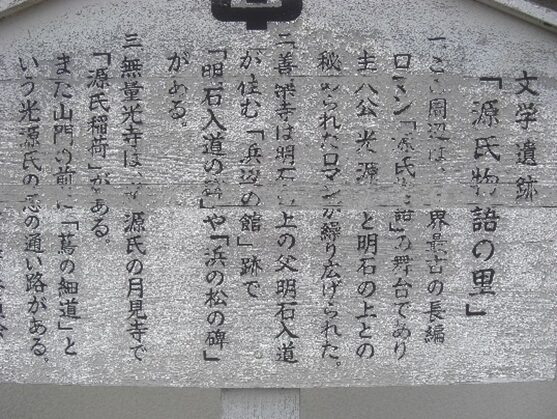 文学遺跡
「源氏物語の里」
一 この周辺は、界最古の長編
ロマン「源氏物語」の舞台であり
主人公光源と明石の上との
秘められたロマンが繰り広げられた。
二 善楽寺は明石の上の父明石入道
が住む「浜辺の館」跡で
「明石入道の碑」や「浜の松の碑」
がある。
三 無量光寺は、源氏の月見寺で
「源氏稲荷」がある。
また山門の前に「蔦の細道」と
いう光源氏の恋の通い路がある。